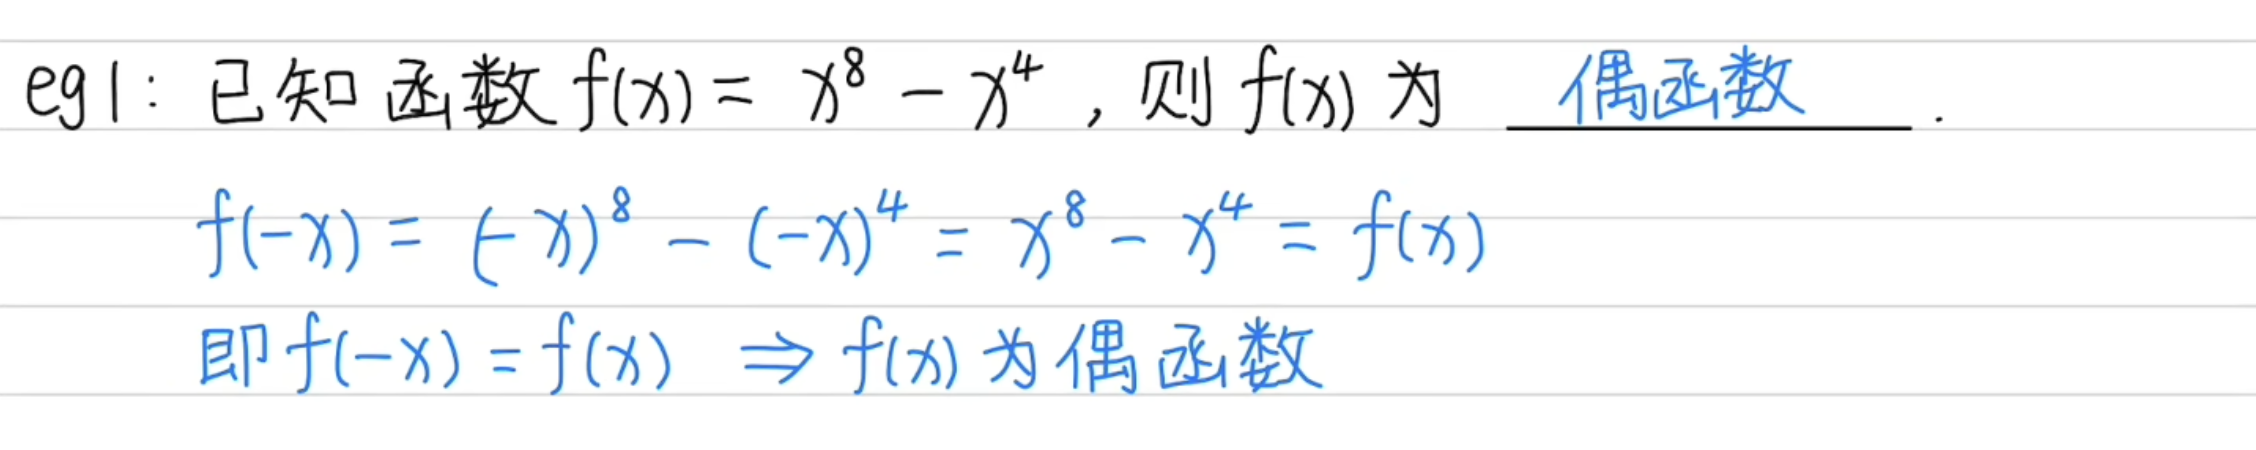 eg1: 已知函数 f(x) = x⁸ - x⁴ , 则 f(x) 为 偶函数 .
f(-x) = (-x)⁸ - (-x)⁴ = x⁸ - x⁴ = f(x)
即 f(-x) = f(x) ⇒ f(x) 为偶函数